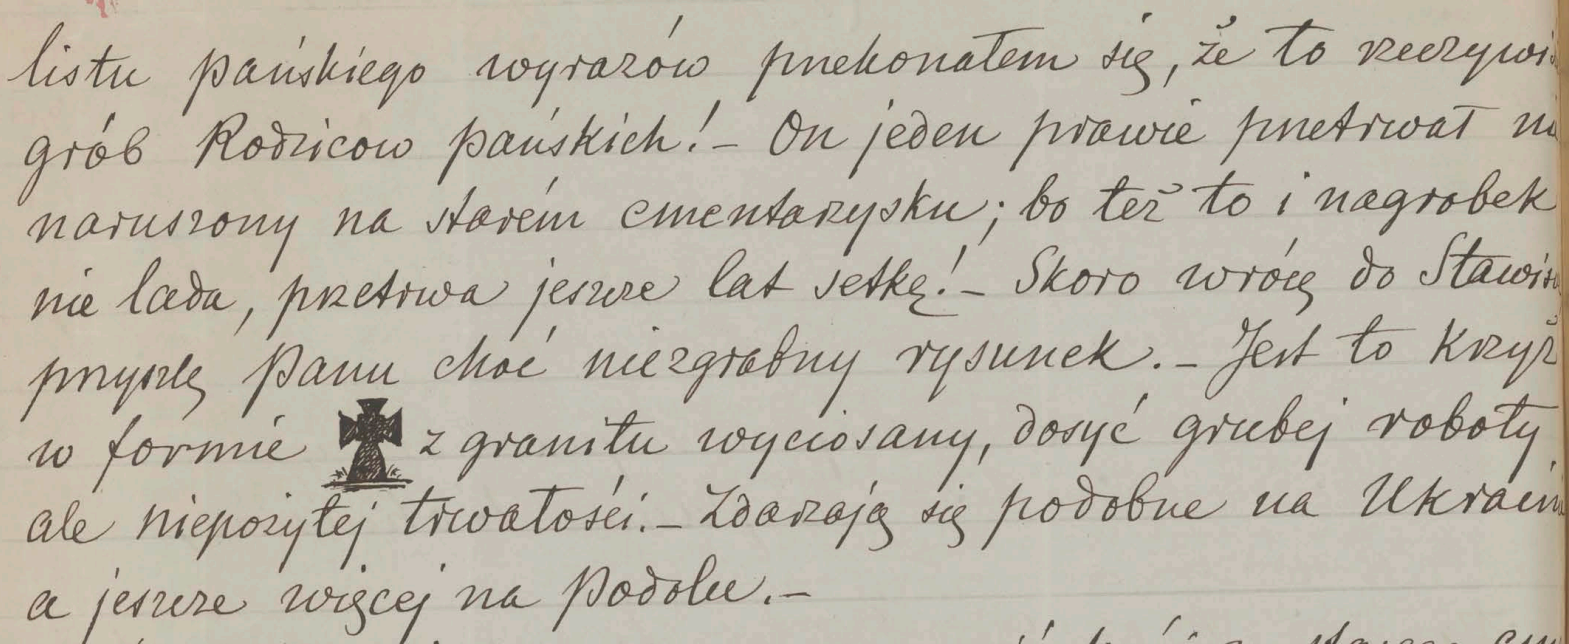 listu pańskiego wyrazów przekonałem się, że to rzeczywi
grób Rodzicow pańskich! – On jeden prawie przetrwał ni
naruszony na starém cmentarzysku; bo też to i nagrobek
nie lada, przetrwa jeszcze lat setkę! – Skoro wrócę do Stawis
przyszlę Panu choć niezgrabny rysunek. – Jest to Krzyż
w formie z granitu wyciosany, dosyć grubej roboty
ale niepożytej trwałości. – Zdarzają się podobne na Ukrain
a jeszcze więcej na Podolu. –